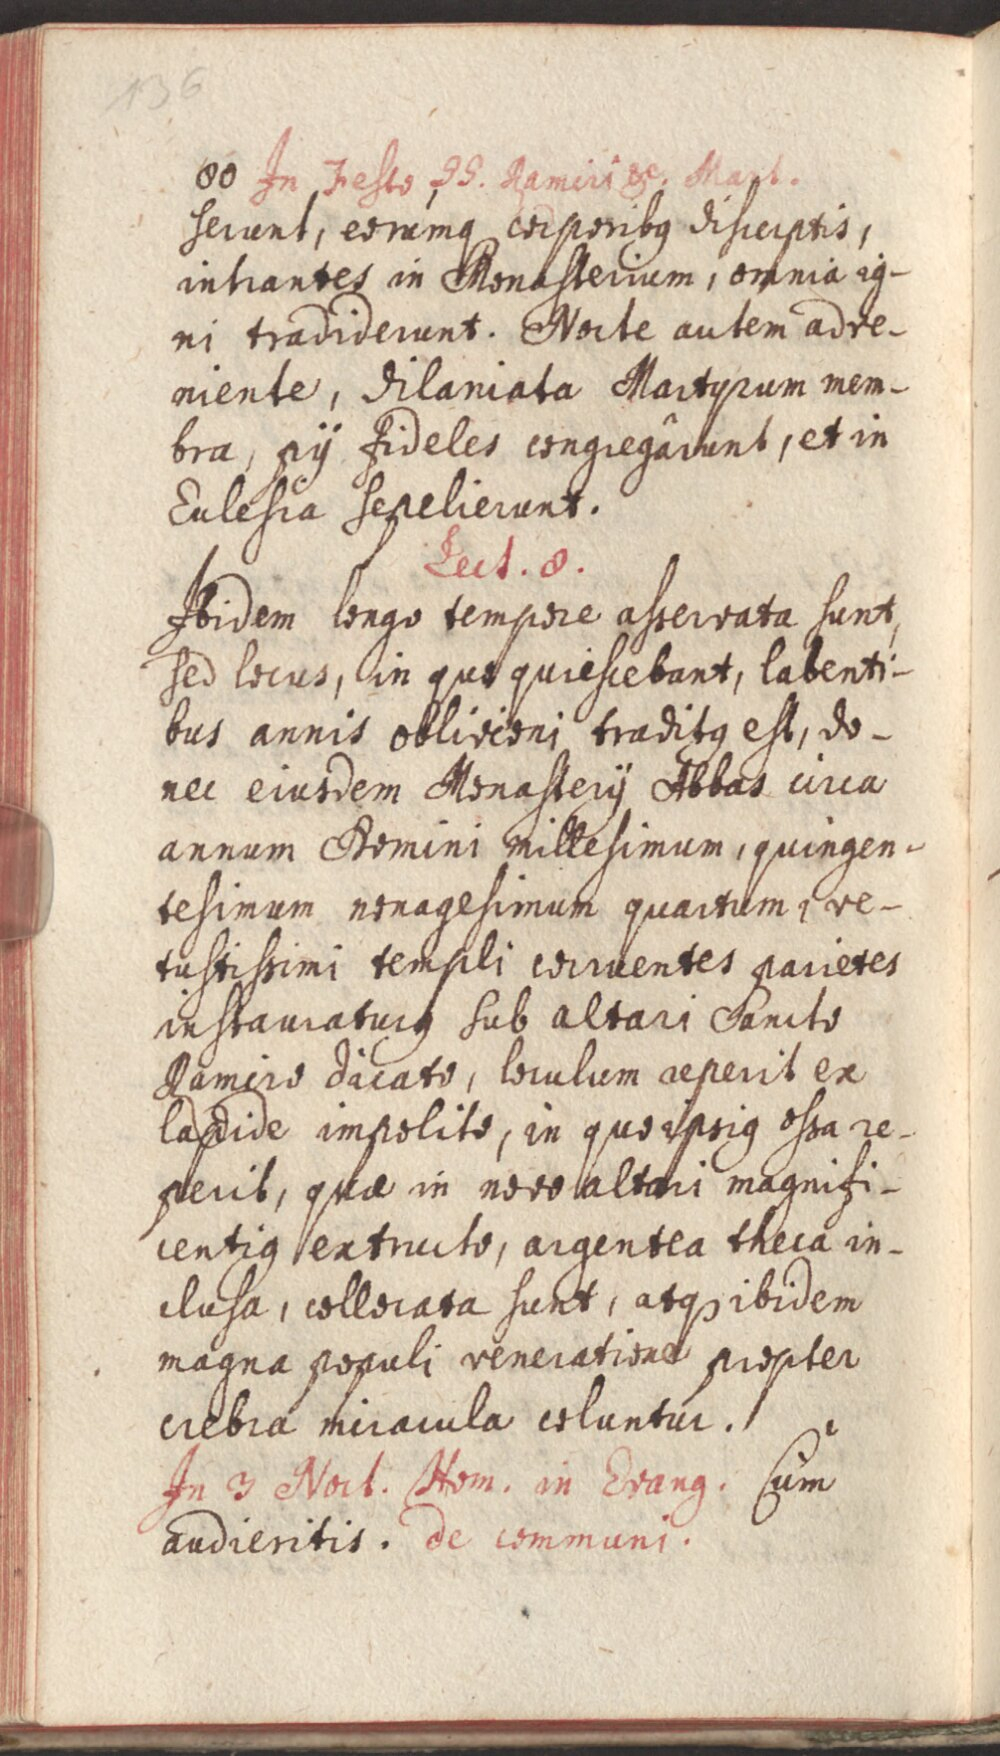 136
80 In Festo SS. Ramiri &c. Mart.
serunt, eorumq corporibq discerptis,
intrantes in Monasterium, omnia ig-
ni tradiderunt. Nocte autem adve-
niente, dilaniata Martyrum mem-
bra, pij fideles congregârunt, et in
Eclesia sepelierunt.
Lect. 8.
Ibidem longo tempore asservata sunt,
sed locus, in quo quiescebant, labenti-
bus annis oblivioni traditq est, do-
nec eiusdem Monasterij Abbas circa
annum Domini millesimum, quingen-
tesimum nonagesimum quartum, ve-
tustissimi templi corruentes parietes
instauraturq sub altari Sancto
Ramiro dicato, loculum reperit ex
lapide impolito, in quo ipsiq ossa re-
perit, quæ in novo altari magnifi-
centiq extructo, argentea theca in-
clusa, collocata sunt, atq ibidem
magna populi veneratione propter
crebra miracula coluntur.
In 3 Noct. Hom. in Evang. Cum
audieritis. de communi.